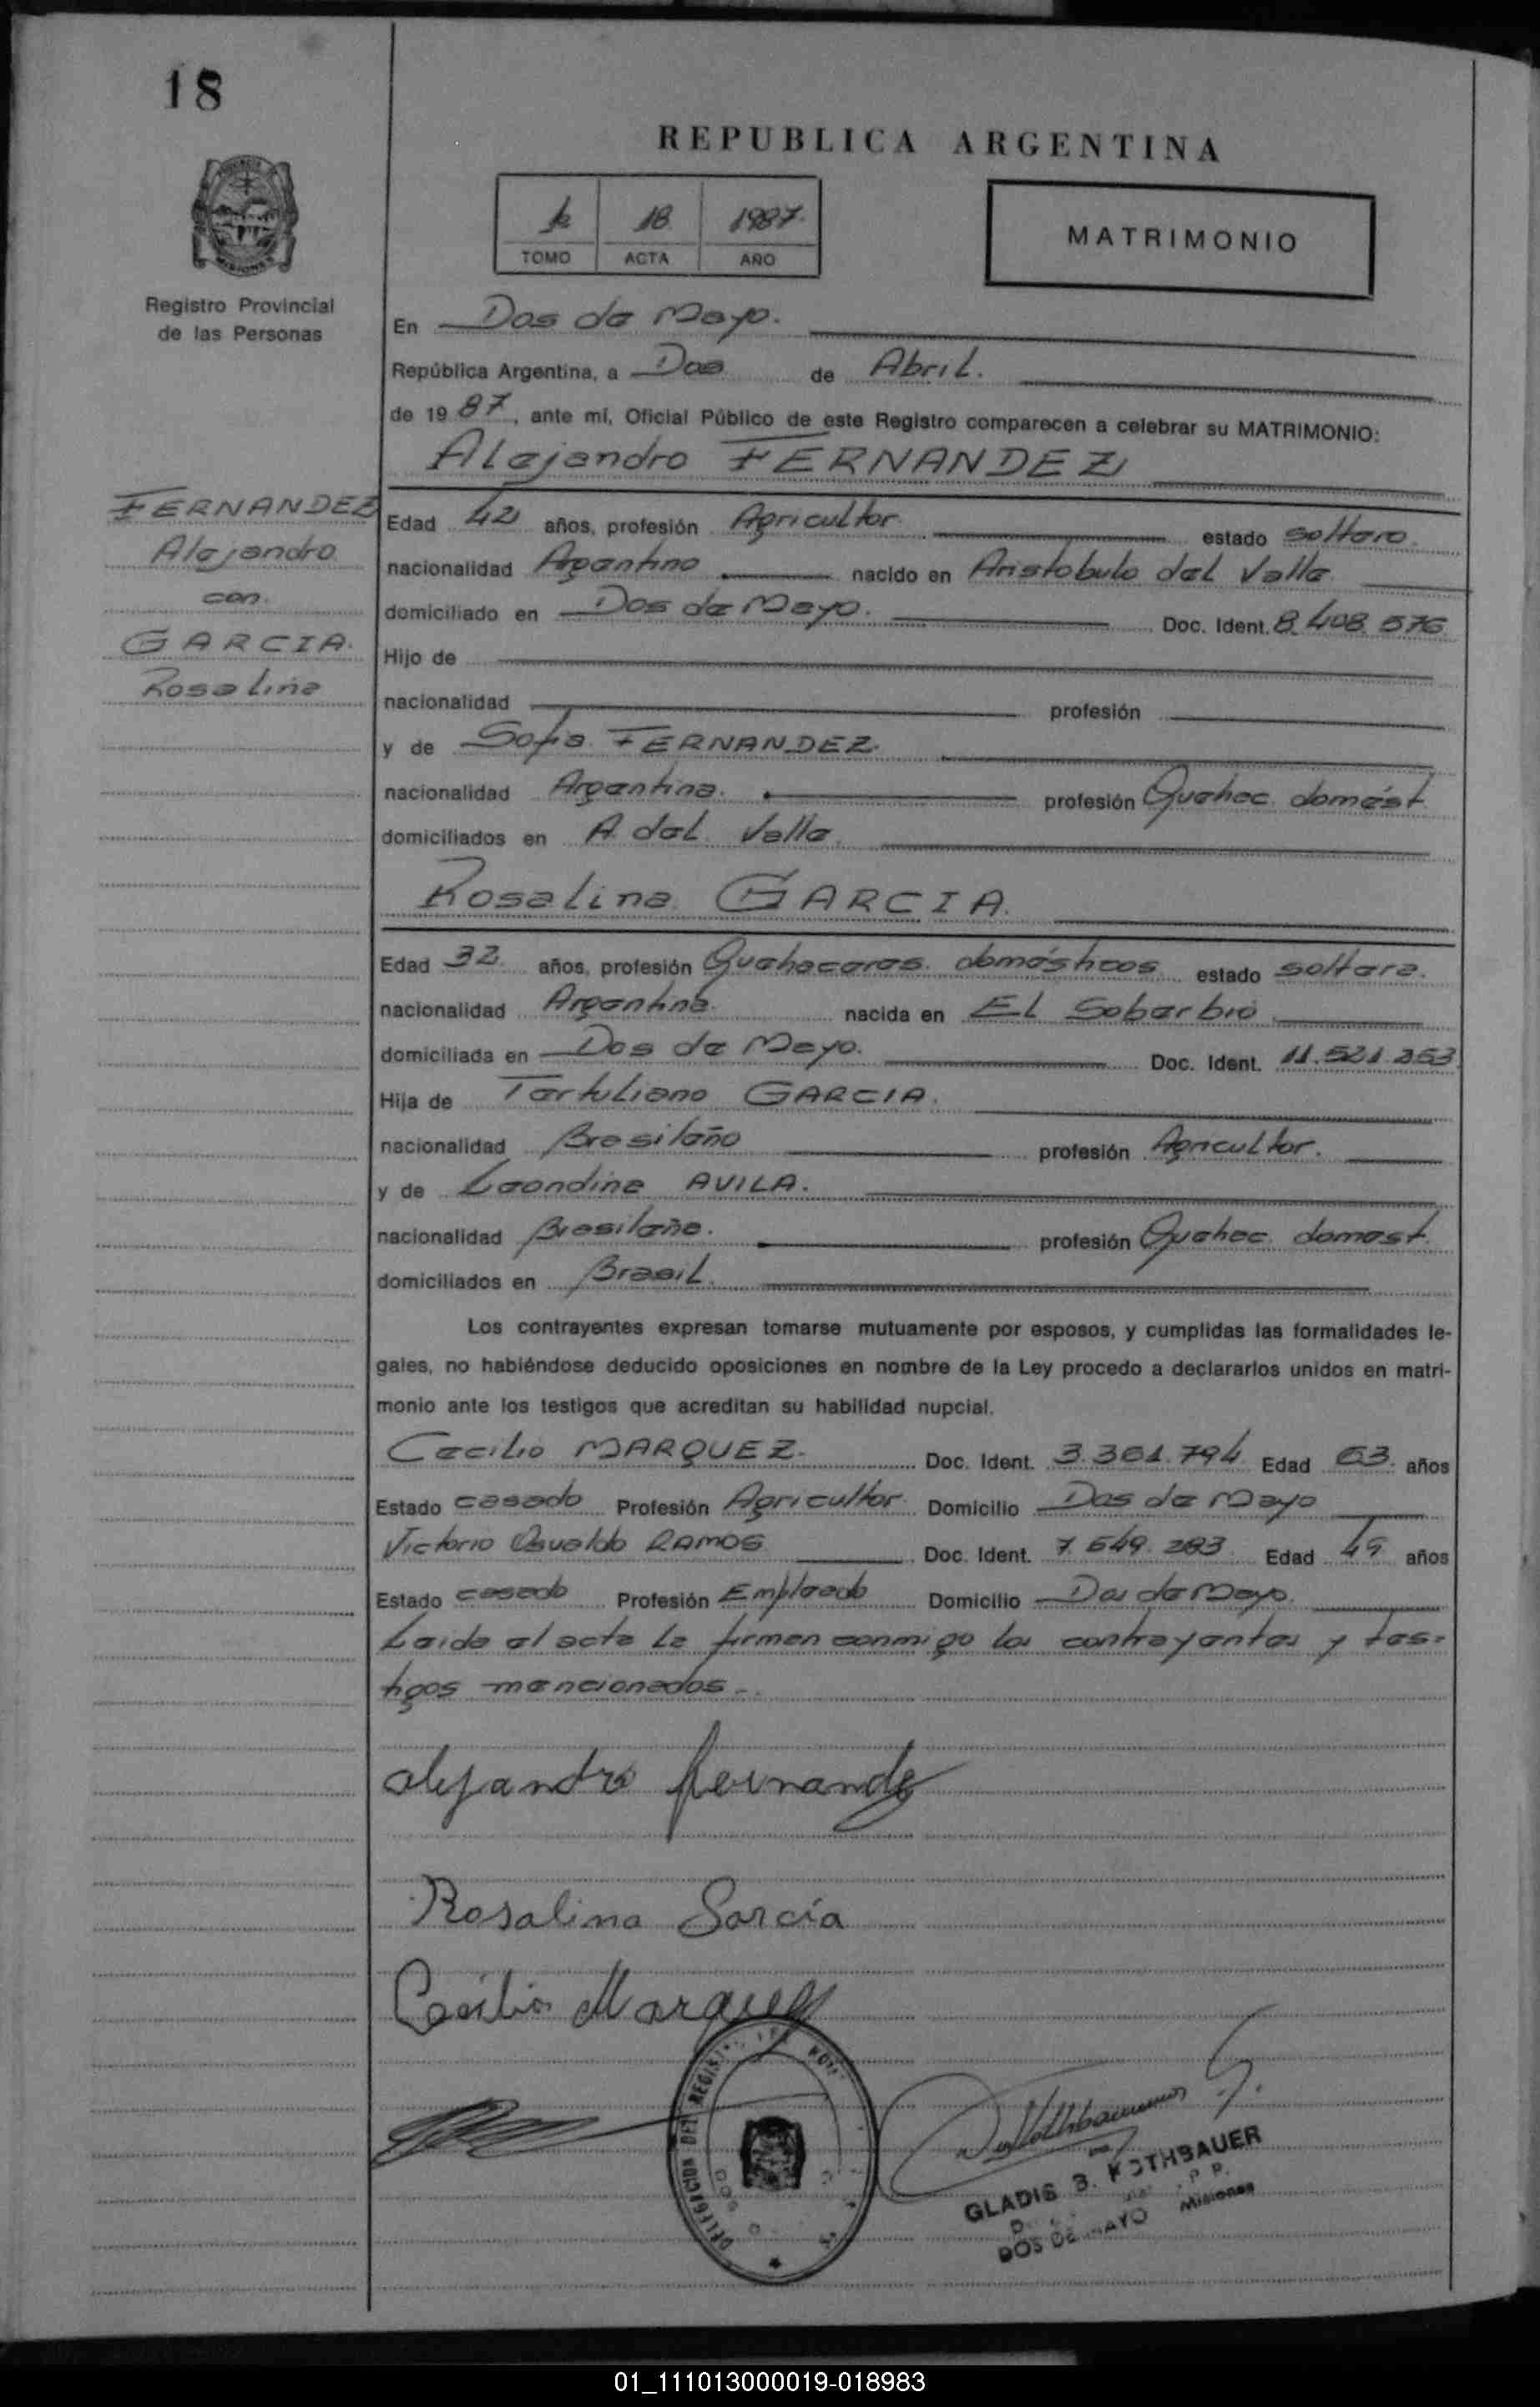 18
REPUBLICA ARGENTINA
18 1987.
TOMO ACTA AÑO
MATRIMONIO
Registro Provincial
de las Personas
En Dos de Mayo.
República Argentina, a Dos de Abril.
de 19 87, ante mí, Oficial Público de este Registro comparecen a celebrar su MATRIMONIO:
Alejandro FERNANDEZ
FERNANDEZ
Alejandro
con
GARCIA.
Rosalina
Edad 42 años, profesión Agricultor estado soltero.
nacionalidad Argentino nacido en Aristobulo del Valle
domiciliado en Dos de Mayo. Doc. Ident. 8.408.576
Hijo de
nacionalidad profesión
y de Sofia FERNANDEZ.
nacionalidad Argentina. profesión Quehac. domést.
domiciliados en A. del Valle.
Rosalina GARCIA.
Edad 32 años, profesión Quehaceres domésticos estado soltera.
nacionalidad Argentina. nacida en El Soberbio
domiciliada en Dos de Mayo. Doc. Ident. 11.521.253
Hija de Tertuliano GARCIA.
nacionalidad Brasileño profesión Agricultor.
y de Leondina AVILA.
nacionalidad Brasileña. profesión Quehac. domest.
domiciliados en Brasil.
Los contrayentes expresan tomarse mutuamente por esposos, y cumplidas las formalidades le-
gales, no habiéndose deducido oposiciones en nombre de la Ley procedo a declararlos unidos en matri-
monio ante los testigos que acreditan su habilidad nupcial.
Cecilio MARQUEZ. Doc. Ident. 3.361.794 Edad 63. años
Estado casado Profesión Agricultor Domicilio Dos de Mayo
Victorio Osvaldo RAMOS Doc. Ident. 7.549.283 Edad 49 años
Estado casado Profesión Empleado Domicilio Dos de Mayo.
Leida el acta la firman conmigo los contrayentes y tes-
tigos mencionados.
alejandro fernandez
Rosalina Garcia
Cecilio Marquez
DELEGACION DEL REGIST
GLADIS B. ROTHBAUER
DOS DE MAYO Misiones
01_111013000019-018983